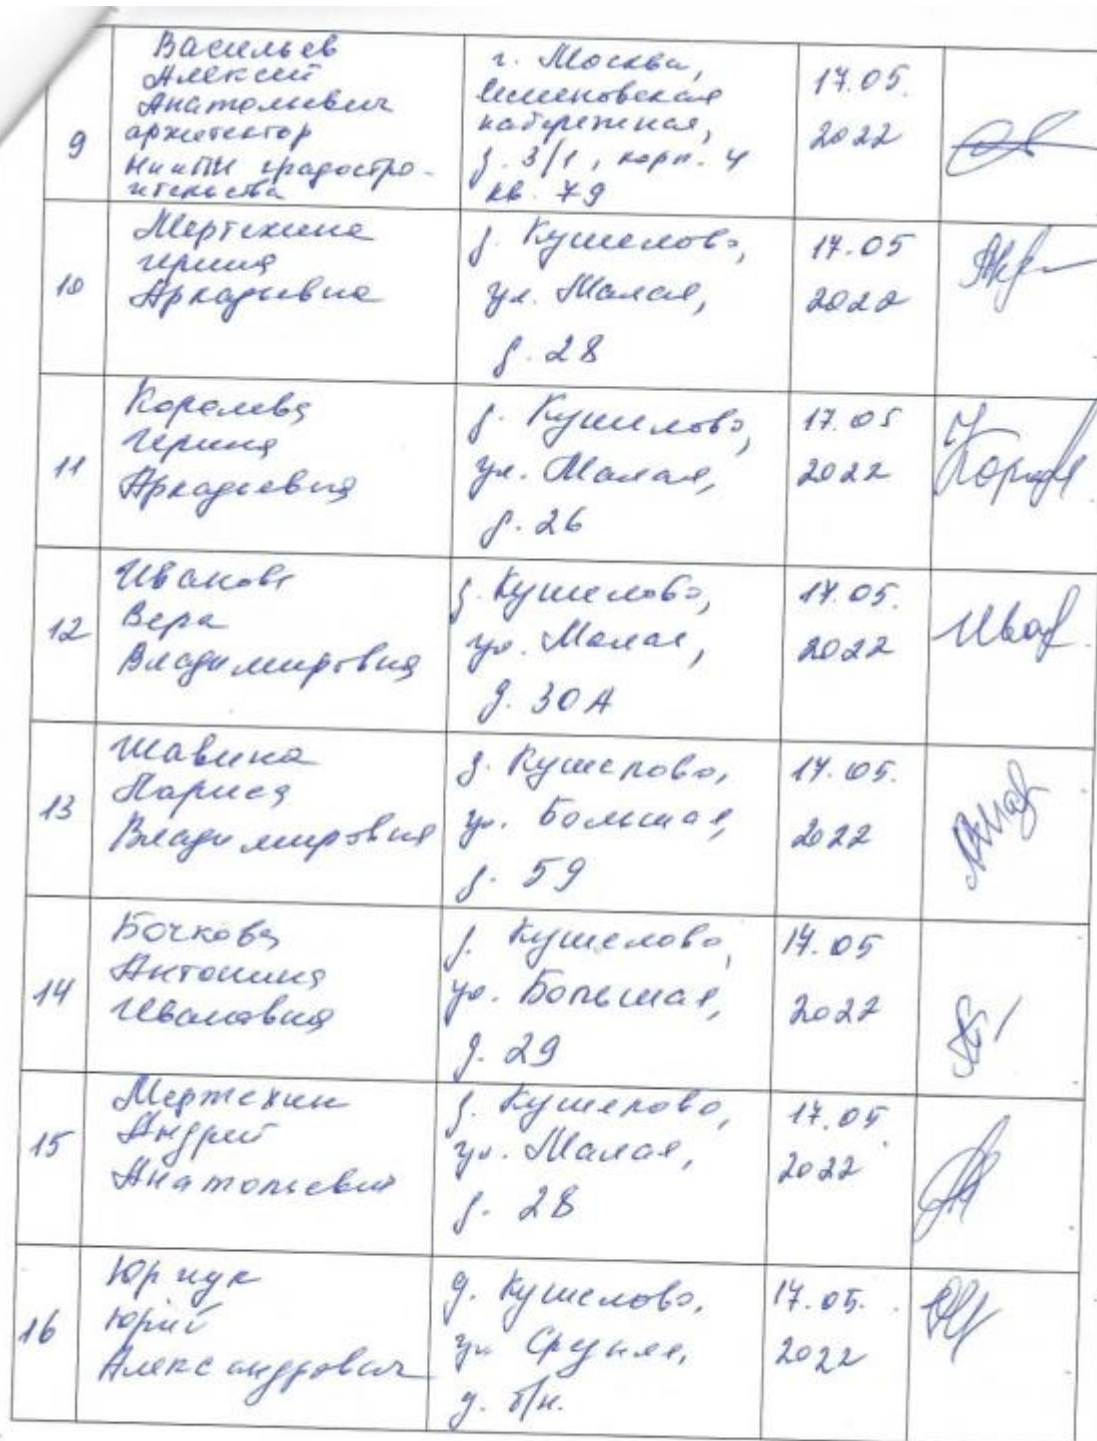 9
Васильев
Алексей
Анатольевич
архитектор
НииПИ градостро-
ительства
г. Москва,
Семеновская
набережная,
д. 3/1, корп. 4
кв. 79
17.05.
2022
10
Мертехина
Ирина
Аркадьевна
д. Кушелово,
ул. Малая,
д. 28
17.05
2022
11
Королева
Ирина
Аркадьевна
д. Кушелово,
ул. Малая,
д. 26
17.05
2022
12
Иванова
Вера
Владимировна
д. Кушелово,
ул. Малая,
д. 30А
17.05.
2022
13
Шавина
Лариса
Владимировна
д. Кушелово,
ул. Большая,
д. 59
17.05.
2022
14
Бочкова
Антонина
Ивановна
д. Кушелово,
ул. Большая,
д. 29
17.05
2022
15
Мертехин
Андрей
Анатольевич
д. Кушелово,
ул. Малая,
д. 28
17.05
2022
16
Юрчук
Юрий
Александрович
д. Кушелово,
ул. Средняя,
д. б/н.
17.05.
2022